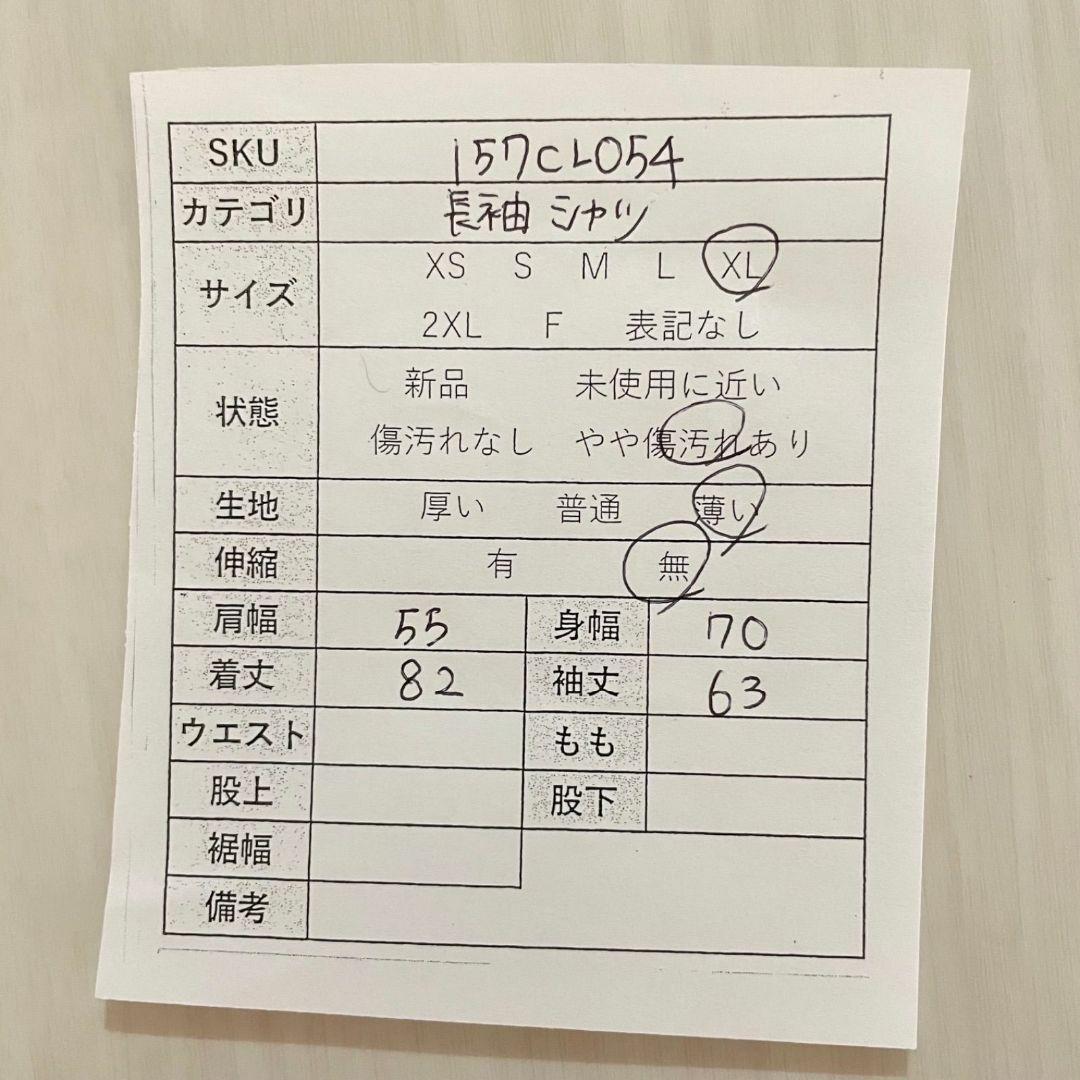 SKU 157CL054
カテゴリ 長袖 シャツ
サイズ XS S M L XL
2XL F 表記なし
状態 新品 未使用に近い
傷汚れなし やや傷汚れあり
生地 厚い 普通 薄い
伸縮 有 無
肩幅 55 身幅 70
着丈 82 袖丈 63
ウエスト もも
股上 股下
裾幅
備考